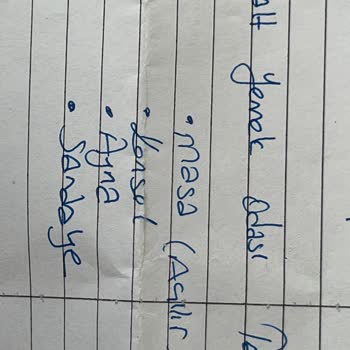 alt Yemek Odası
• masa (Açılır
• Konsol
• Ayna
• Sandalye